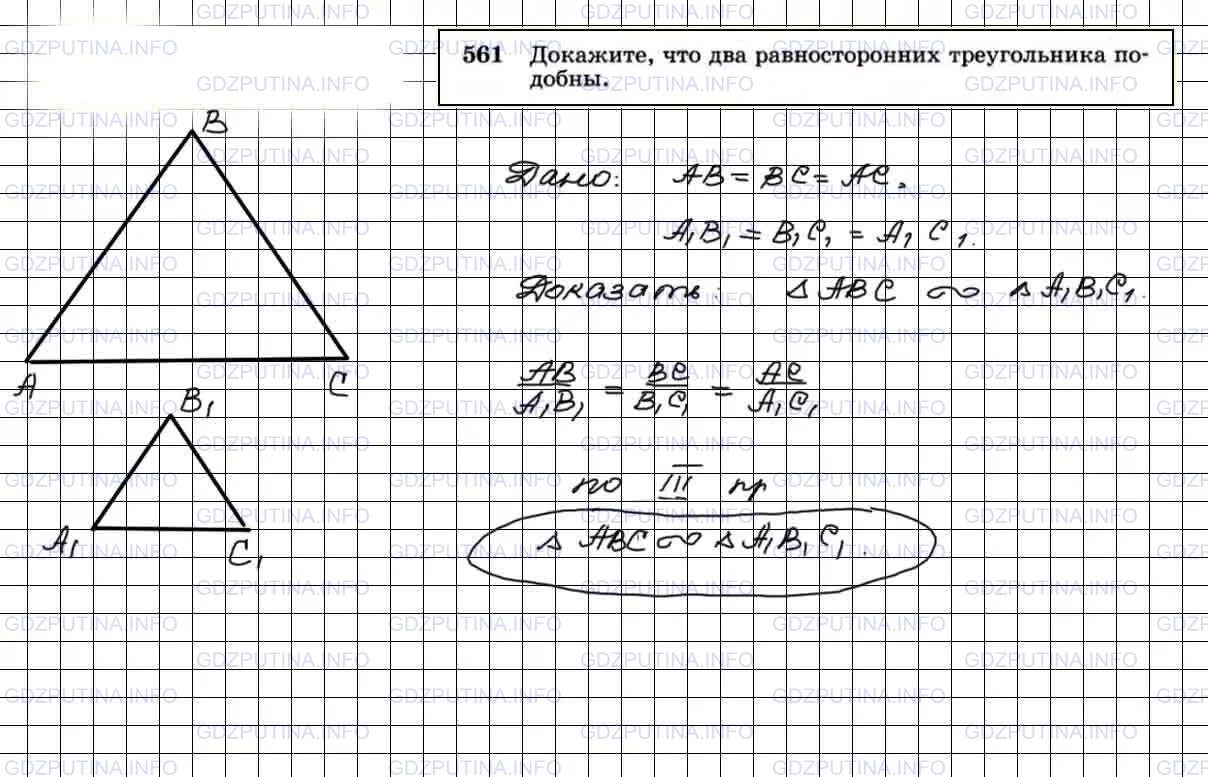 561 Докажите, что два равносторонних треугольника по-
добны.
B
Дано: AB = BC = AC,
A₁B₁ = B₁C₁ = A₁C₁.
Доказать: △ABC ∾ △A₁B₁C₁.
A
C
AB/A₁B₁ = BC/B₁C₁ = AC/A₁C₁
B₁
по III пр
△ABC ∾ △A₁B₁C₁.
A₁
C₁
GDZPUTINA.INFO